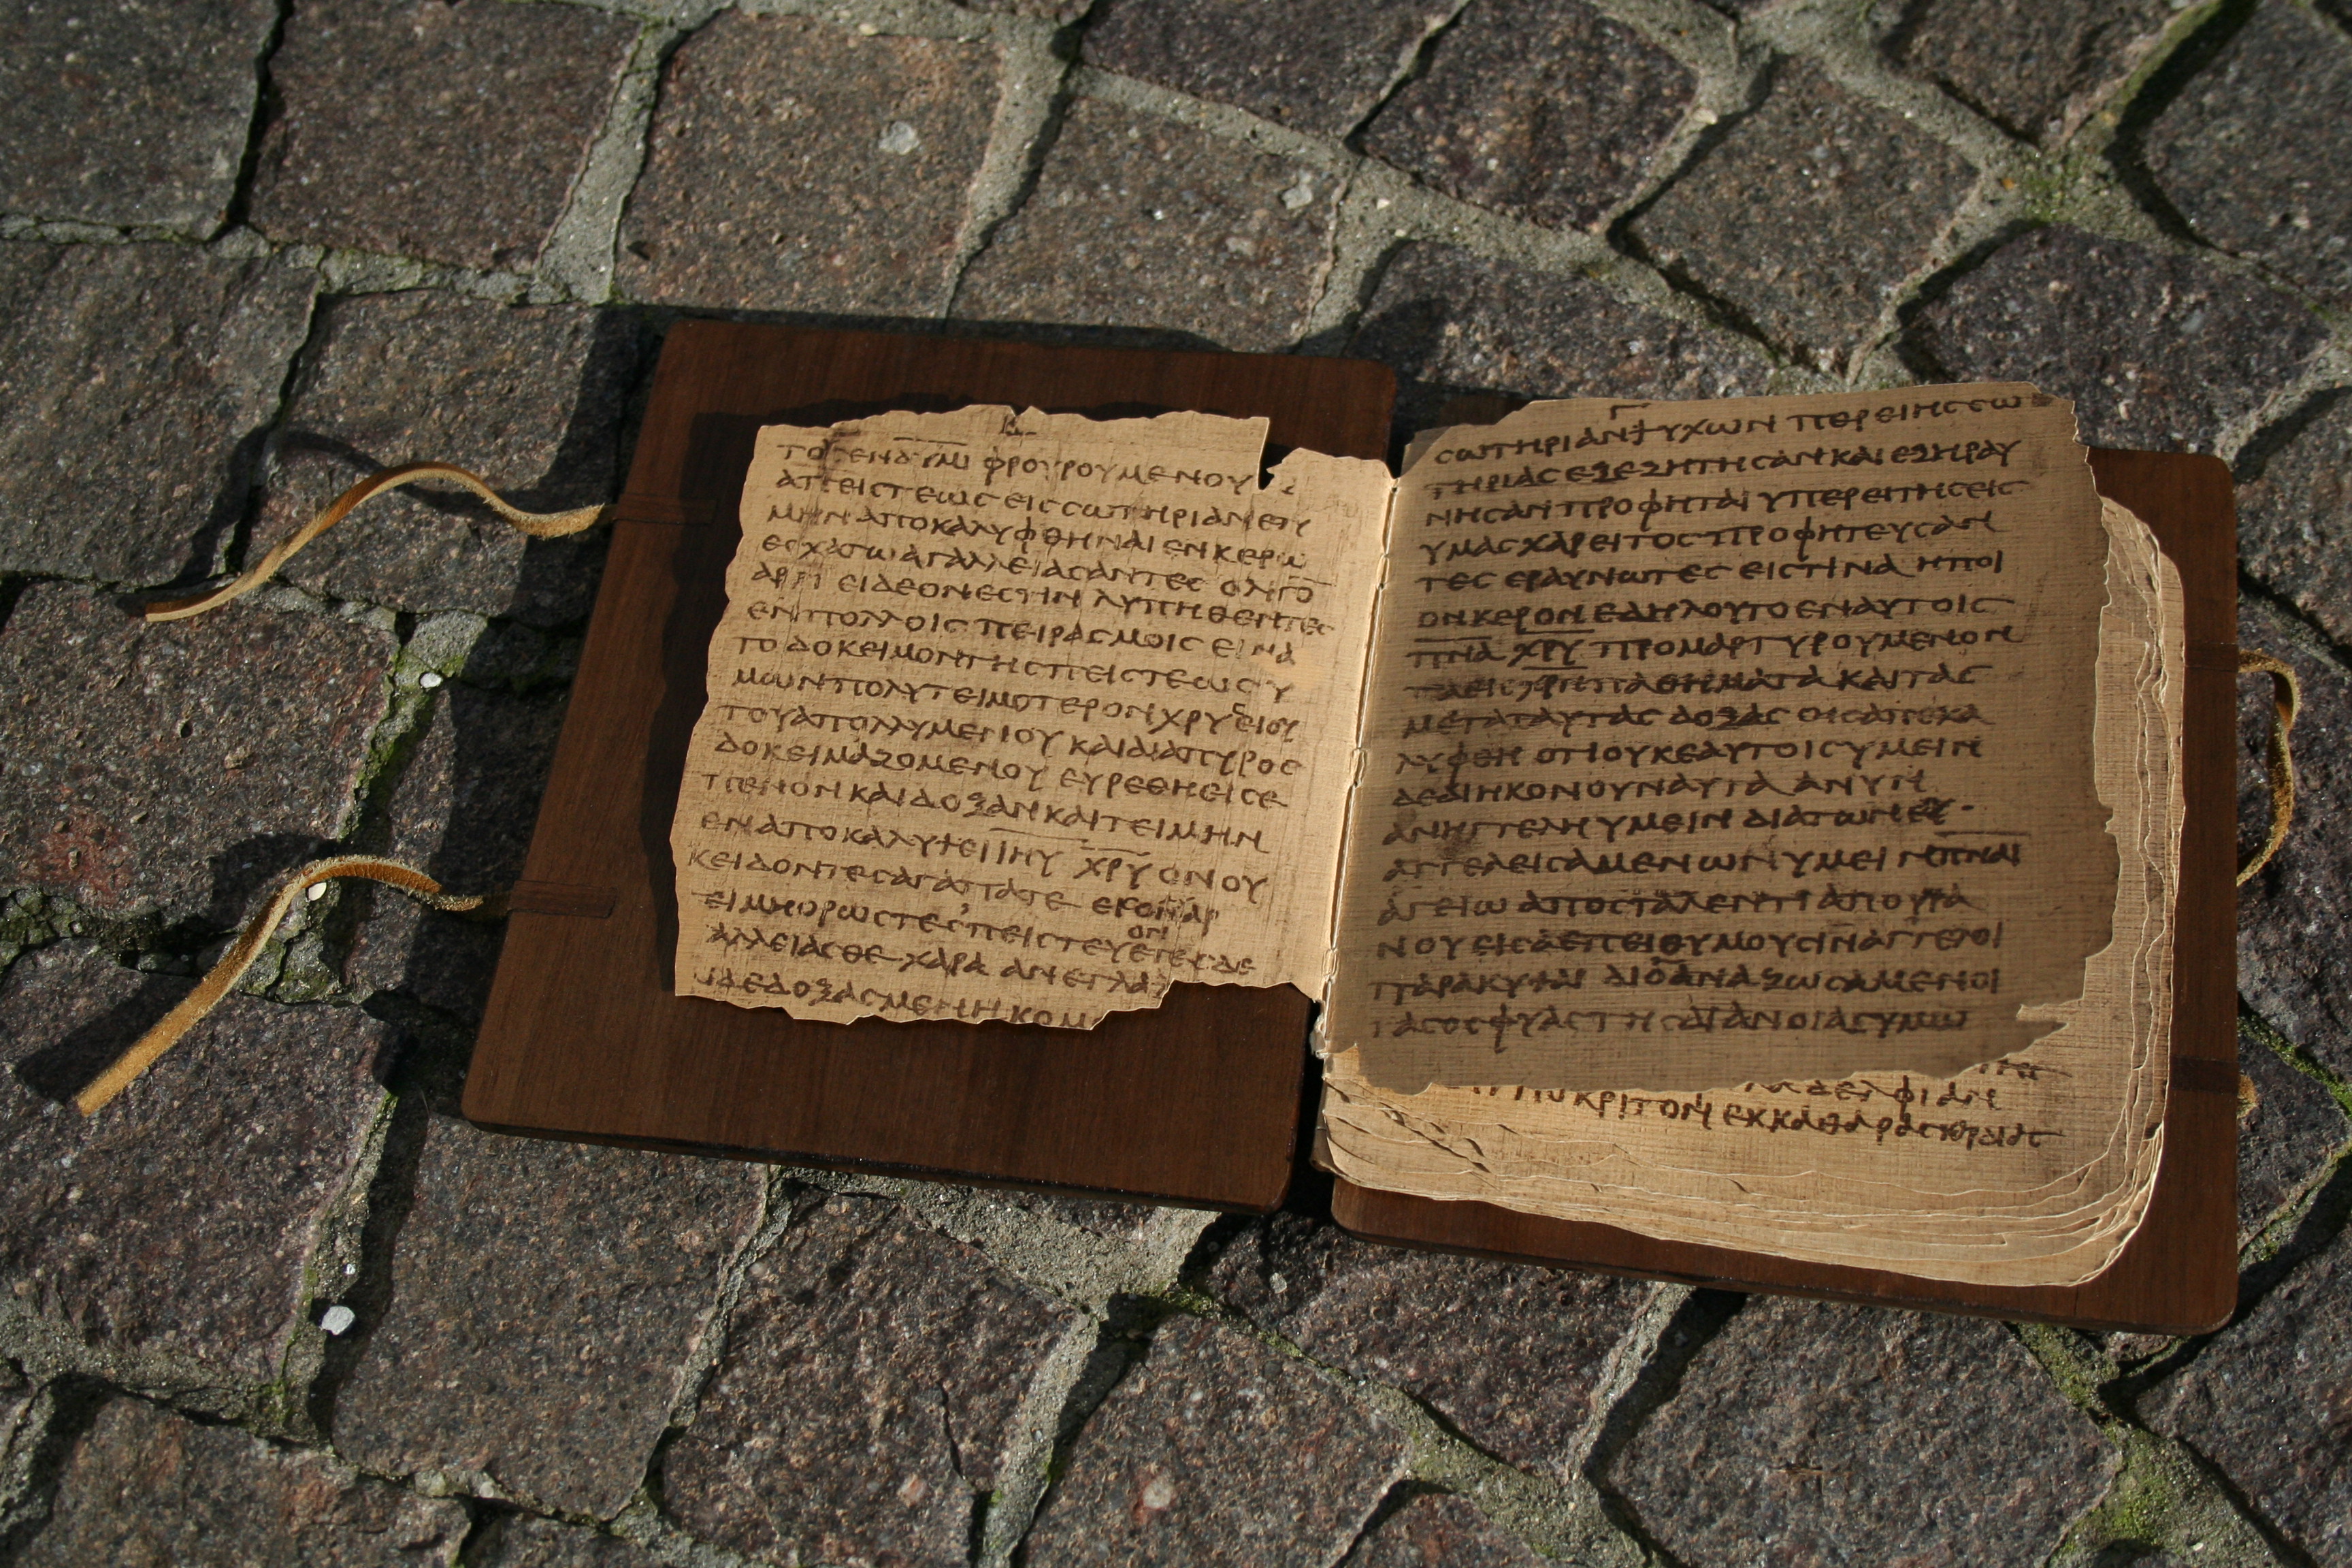 ΦΡΟΥΡΟΥΜΕΝΟΥ
ΑΠΕΙϹΤΕΩϹ ΕΙϹ ϹΩΤΗΡΙΑΝ ΕΤΥ
ΜΗΝ ΑΠΟΚΑΛΥΦΘΗΝΑΙ ΕΝ ΚΕΡΩ
ΕϹΧΑΤΩ ΑΓΑΛΛΕΙΑϹΑΝΤΕϹ ΟΛΙΓΟ
ΑΡΤΙ ΕΙ ΔΕΟΝ ΕϹΤΙΝ ΛΥΠΗΘΕΝΤΕϹ
ΕΝ ΠΟΛΛΟΙϹ ΠΕΙΡΑϹΜΟΙϹ ΕΙΝΑ
ΤΟ ΔΟΚΕΙΜΟΝ ΤΗϹ ΠΕΙϹΤΕΩϹ Υ
ΜΩΝ ΠΟΛΥΤΕΙΜΟΤΕΡΟΝ ΧΡΥϹΕΙΟΥ
ΤΟΥ ΑΠΟΛΛΥΜΕΝΟΥ ΚΑΙ ΔΙΑ ΠΥΡΟϹ
ΔΟΚΕΙΜΑΖΟΜΕΝΟΥ ΕΥΡΕΘΗ ΕΙϹ Ε
ΠΕΝΟΝ ΚΑΙ ΔΟΞΑΝ ΚΑΙ ΤΕΙΜΗΝ
ΕΝ ΑΠΟΚΑΛΥΨΕΙ Ι̅Η̅Υ̅ Χ̅Ρ̅Υ̅ ΟΝ ΟΥ
Κ ΕΙΔΟΝΤΕϹ ΑΓΑΠΑΤΕ
ΕΙ ΜΗ ΟΡΩϹΤΕϹ ΠΕΙϹΤΕΥΕΤΕ
ΑΛΛΕΙΑϹΘΕ ΧΑΡΑ ΑΝΕΓΛΑ
ΔΕΔΟΞΑϹΜΕΝΗ ΚΟΜ
Γ
ϹΩΤΗΡΙΑΝ ΨΥΧΩΝ ΠΕΡΕΙ ΗϹ ϹΩ
ΤΗΡΙΑϹ ΕΞΕΖΗΤΗϹΑΝ ΚΑΙ ΕΞΗΡΑΥ
ΝΗϹΑΝ ΠΡΟΦΗΤΑΙ ΥΠΕΡΕΙ ΤΗϹ ΕΙϹ
ΥΜΑϹ ΧΑΡΕΙΤΟϹ ΠΡΟΦΗΤΕΥϹΑΝ
ΤΕϹ ΕΡΑΥΝΩΤΕϹ ΕΙϹ ΤΙΝΑ Η ΠΟΙ
ΟΝ ΚΕΡΟΝ ΕΔΗΛΟΥΤΟ ΕΝ ΑΥΤΟΙϹ
Π̅Ν̅Α̅ Χ̅Ρ̅Υ̅ ΠΡΟΜΑΡΤΥΡΟΥΜΕΝΟΝ
ΤΑ ΕΙϹ Χ̅Ρ̅Ν̅ ΠΑΘΗΜΑΤΑ ΚΑΙ ΤΑϹ
ΜΕΤΑ ΤΑΥΤΑϹ ΔΟΞΑϹ ΟΙϹ ΑΠΕΚΑ
ΛΥΦΘΗ ΟΤΙ ΟΥΚ ΕΑΥΤΟΙϹ ΥΜΕΙΝ
ΔΕ ΔΙΗΚΟΝΟΥΝ ΑΥΤΑ Α ΝΥΝ
ΑΝΗΓΓΕΛΗ ΥΜΕΙΝ ΔΙΑ ΤΩΝ ΕΥ
ΑΓΓΕΛΕΙϹΑΜΕΝΩΝ ΥΜΕΙΝ Π̅Ν̅Ι̅
ΑΓΕΙΩ ΑΠΟϹΤΑΛΕΝΤΙ ΑΠ ΟΥΡΑ
ΝΟΥ ΕΙϹ Α ΕΠΕΙΘΥΜΟΥϹΙΝ ΑΓΓΕΛΟΙ
ΠΑΡΑΚΥΨΑΙ ΔΙΟ ΑΝΑΖΩϹΑΜΕΝΟΙ
ΤΑϹ ΟϹΦΥΑϹ ΤΗϹ ΔΙΑΝΟΙΑϹ ΥΜΩ
ΔΕΛΦΙΑΝ
ΠΟΚΡΙΤΟΝ ΕΚ ΚΑΘΑΡΑϹ ΚΡΔΙΑϹ